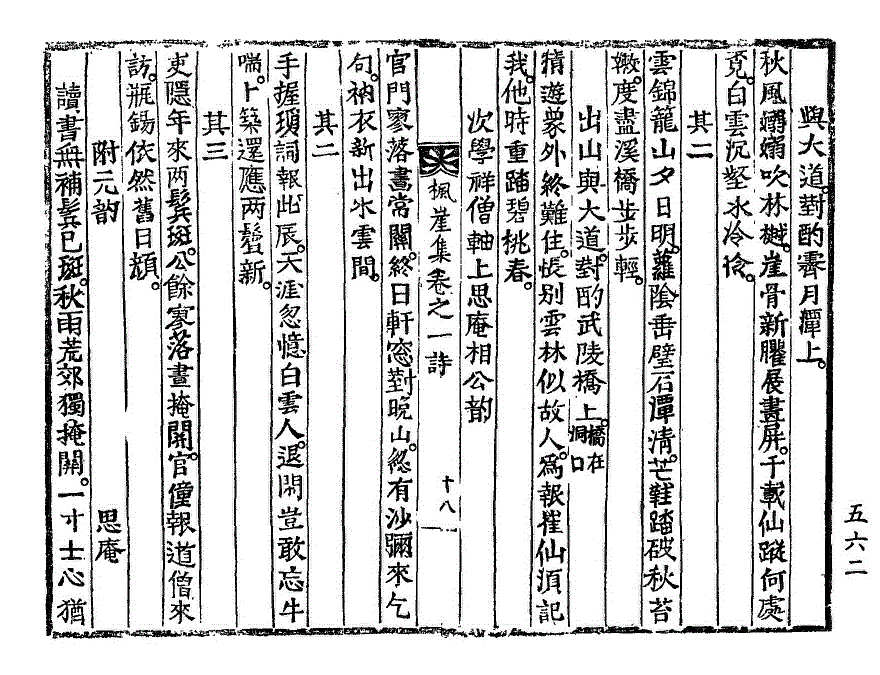 與大道。對酌霽月潭上。
秋風嫋嫋吹林樾。崖骨新臞展畫屛。千載仙蹤何處
覓。白雲沉壑水冷冷。
其二
雲錦籠山夕日明。蘿陰垂壁石潭淸。芒鞋踏破秋苔
緻。度盡溪橋步步輕。
出山與大道。對酌武陵橋上。橋在洞口
猜遊象外終難住。悵別雲林似故人。爲報崔仙須記
我。他時重踏碧桃春。
次學祥僧軸上思庵相公韵
楓崖集卷之一 詩 十八
官門寥落晝常關。終日軒窓對晩山。忽有沙彌來乞
句。衲衣新出水雲間。
其二
手握瓊詞報此辰。天涯忽憶白雲人。退閒豈敢忘牛
喘。卜築還應兩鬢新。
其三
吏隱年來兩鬂斑。公餘寥落晝掩關。官僮報道僧來
訪。甁錫依然舊日顔。
附元韵 思庵
讀書無補鬂已斑。秋雨荒郊獨掩關。一寸士心猶
五六二